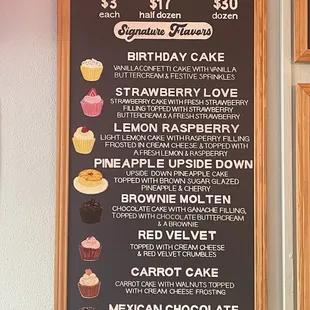 $3 $17 $30
each half dozen dozen
Signature Flavors
BIRTHDAY CAKE
VANILLA CONFETTI CAKE WITH VANILLA
BUTTERCREAM & FESTIVE SPRINKLES
STRAWBERRY LOVE
STRAWBERRY CAKE WITH FRESH STRAWBERRY
FILLING TOPPED WITH STRAWBERRY
BUTTERCREAM & A FRESH STRAWBERRY
LEMON RASPBERRY
LIGHT LEMON CAKE WITH RASPERRY FILLING
FROSTED IN CREAM CHEESE & TOPPED WITH
A FRESH LEMON & RASPBERRY
PINEAPPLE UPSIDE DOWN
UPSIDE DOWN PINEAPPLE CAKE
TOPPED WITH BROWN SUGAR GLAZED
PINEAPPLE & CHERRY
BROWNIE MOLTEN
CHOCOLATE CAKE WITH GANACHE FILLING,
TOPPED WITH CHOCOLATE BUTTERCREAM
& A BROWNIE
RED VELVET
TOPPED WITH CREAM CHEESE
& RED VELVET CRUMBLES
CARROT CAKE
CARROT CAKE WITH WALNUTS TOPPED
WITH CREAM CHEESE FROSTING
MEXICAN CHOCOLATE